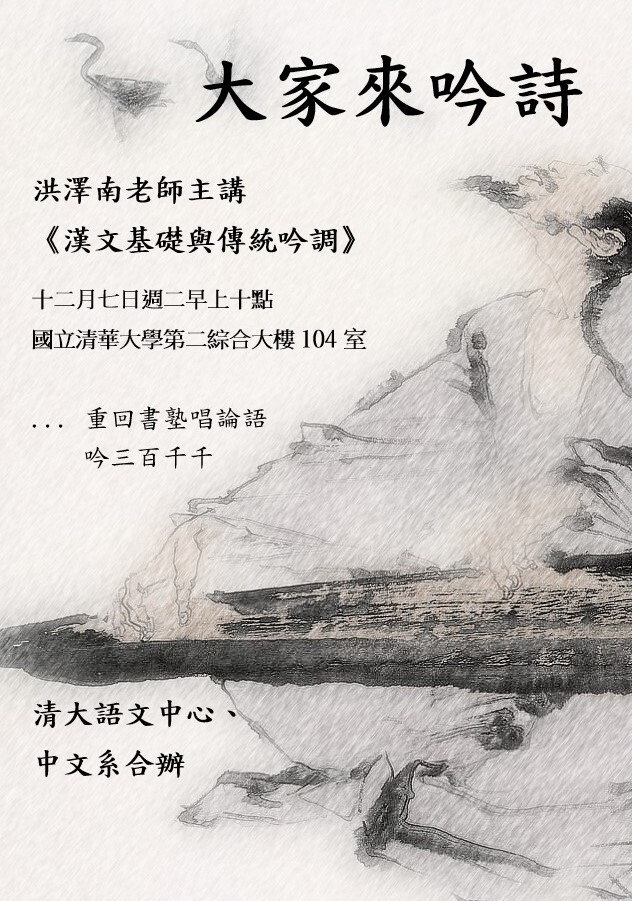 大家來吟詩
洪澤南老師主講
《漢文基礎與傳統吟調》
十二月七日週二早上十點
國立清華大學第二綜合大樓 104 室
... 重回書塾唱論語
吟三百千千
清大語文中心、
中文系合辦